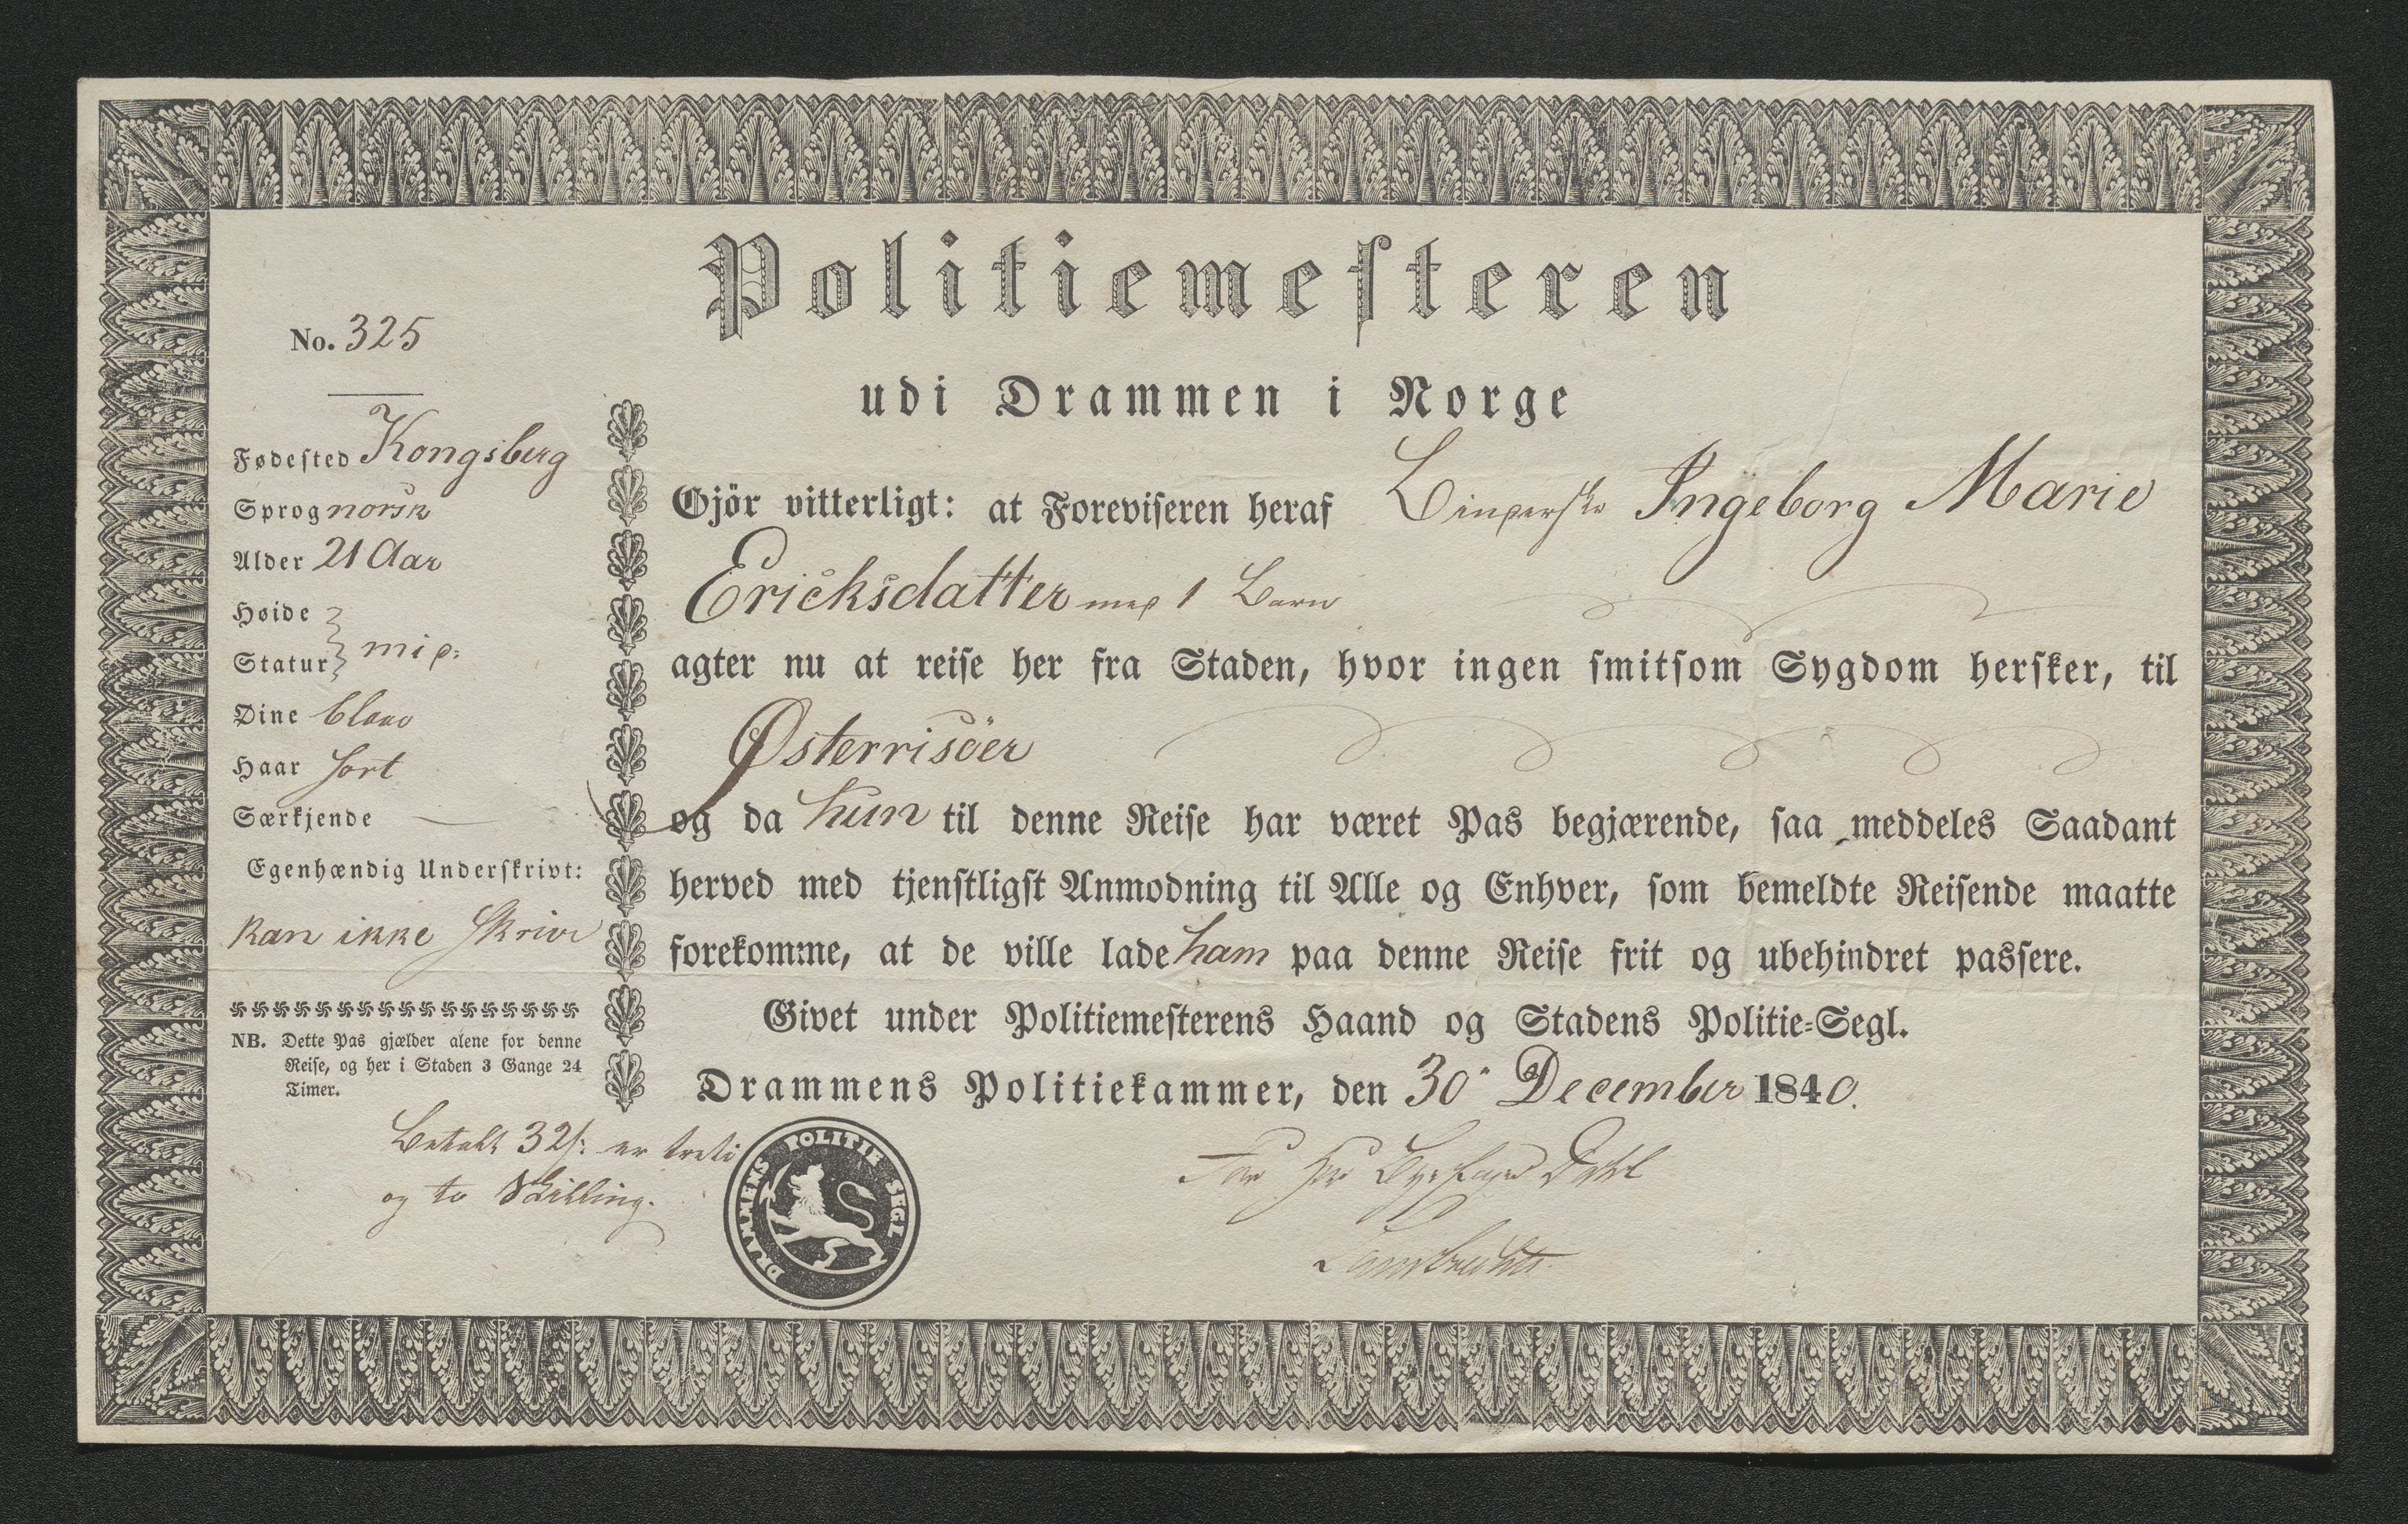 Politiemesteren
udi Drammen i Norge
No. 325
Fødested Kongsberg
Sprog norsk
Alder 21 Aar
Høide
Statur } mid:
Øine blaae
Haar sort
Særkjende —
Egenhændig Underskrivt:
kan ikke skrive
NB. Dette Pas gjælder alene for denne
Reise, og her i Staden 3 Gange 24
Timer.
Betalt 32 s: er treti
og to Skilling.
Gjör vitterligt: at Foreviseren heraf Ingeborg Marie
Ericksdatter med 1 Barn
agter nu at reise her fra Staden, hvor ingen smitsom Sygdom hersker, til
Østerrisöer
og da hun til denne Reise har været Pas begjærende, saa meddeles Saadant
herved med tjenstligst Anmodning til Alle og Enhver, som bemeldte Reisende maatte
forekomme, at de ville lade ham paa denne Reise frit og ubehindret passere.
Givet under Politiemesterens Haand og Stadens Politie-Segl.
Drammens Politiekammer, den 30 December 1840.
DRAMMENS POLITIE SEGL